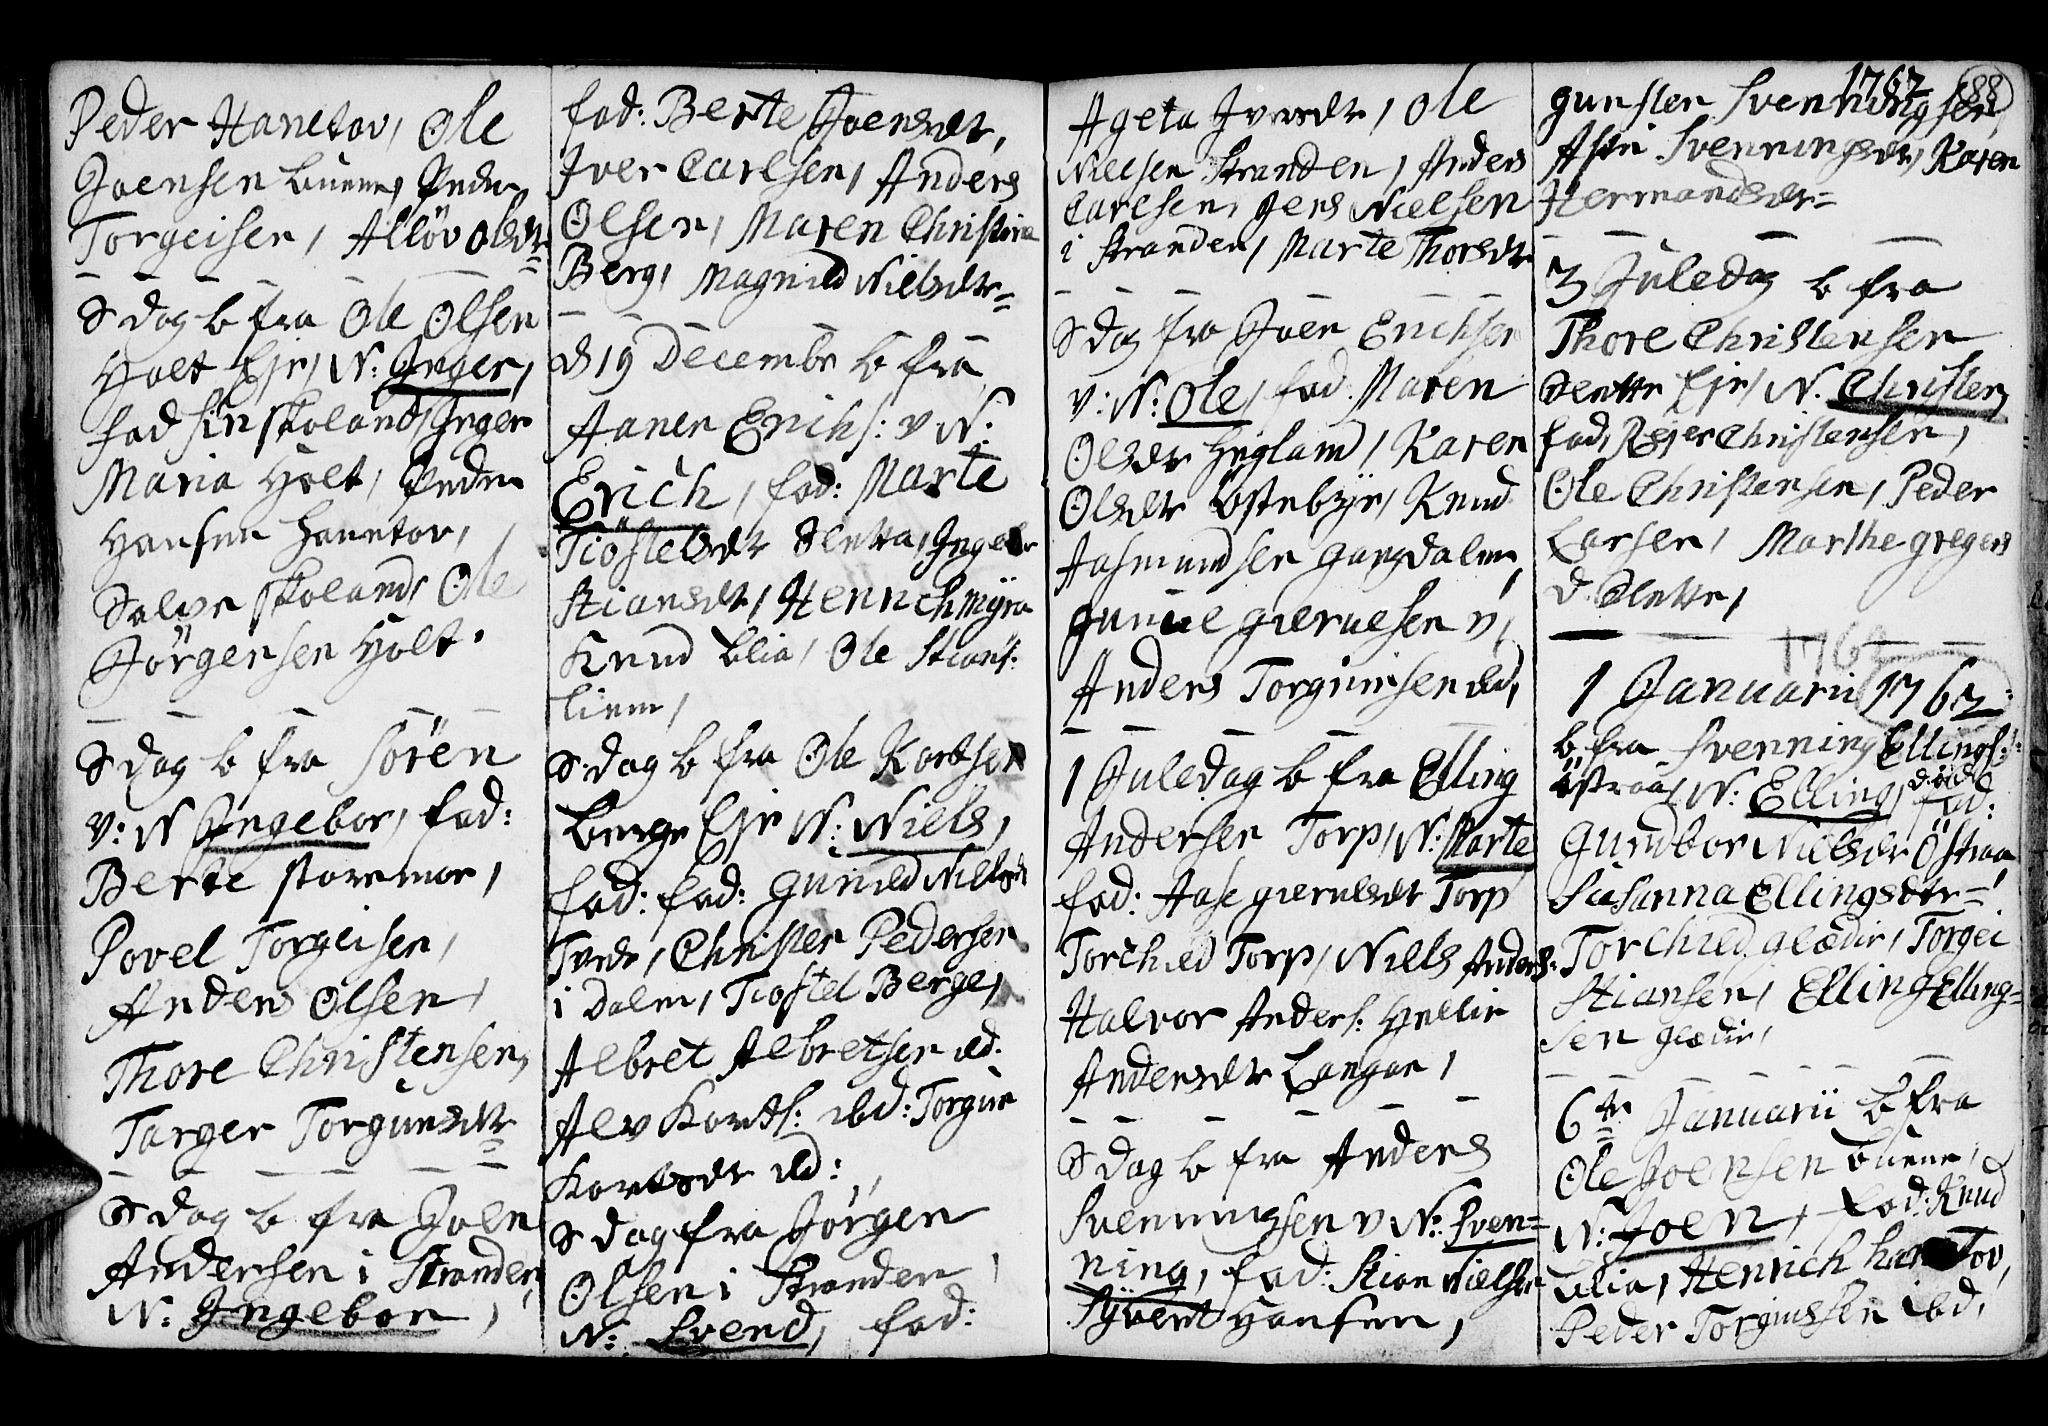 Peder Hanetov, Ole
Joensen buene, Peder
Torgeisen, Allöv olsdr=
S dag b fra Ole Olsen
Holt Eje, N: Inger,
fad Siri skoland, Inger
Maria Holt, Peder
Hansen hanetov,
Salve skoland, Ole
Jörgensen Holt.
S dag b fra Sören
v: N Ingebor, fad:
Berte storemor,
Povel Torgeisen,
Anders Olsen,
Thore Christensen,
Targer Torguesdtr=
S dag b fra Joen
Andersen i Stranden,
N: Ingebor,
fad: Berte Joensdtr,
Iver Carlsen, Anders
Olsen, Maren Christina
Berg, Magnild Nielsdtr=
d 19 Decembr b fra
Aanen Erichs: v N:
Erich, fad: Marte
Tiöstelsdtr Sletta, Ingebor
Stiansdt, Henrich myra
Knud Blia, Ole Stians:
liene,
S dag b fra Ole Kortsen
berge Eje N: Niels,
fad: fad: Gunild Nielsdt
Tvede, Christen Pedersen
i Dalen, Tiostel Berge,
Albret Albretsen ibd.
Alv Korts: ibd: Torgue
Kortsdr ibd:
S dag fra Jörgen
Olsen i Stranden,
N: Svend, fad:
Ageta Iversdr, Ole
Nielsen Stranden, Anders
Carlsen, Jens Nielsen
i stranden, Marte Thorsdtr
S dag fra Joen Erichsen
v: N: Ole, fad. Maren
Olsdr Hegland, Karen
Olsdr Ostebye, Knud
Aasmundsen Gangdalen,
Gunuel Gieruelsen v,
Anders Torgrimsen ibd,
1 Juledag b fra Elling
Andersen Torp, N: Marte
fad: Aase gierulsdt Torp
Torchild Torp, Niels Anders:
Halvor Anders: Hellie
Andersdtr Langae,
S dag b fra Anders
Svenningsen v N: Sven=
ning, fad: Stian Nielsen
Syvert Hansen,
1762 188
gunster Svenningsen,
Asse Svenningsdr, Karen
Hermandsdr=
3 Juledag b fra
Thore Christensen
Slette Eje, N. Christen,
fad, Rejer Christensen,
Ole Christensen, Peder
Larsen, Marthe gregers
d. Slette,
1762
1 Januarii 1762:
b fra Svenning Ellings:
Östraa, N: Elling, død
fad:
Gundbor Nielsdr Östraa,
Susanna Ellingsdtr=
Torchild glædie, Torgei
Stiansen, Elling Elling=
sen Glædie,
6te Januarii b fra
Ole Joensen buene,
N: Joen, fad: Knud
blia, Henrich hanetov,
Peder Torgiussen ibd,